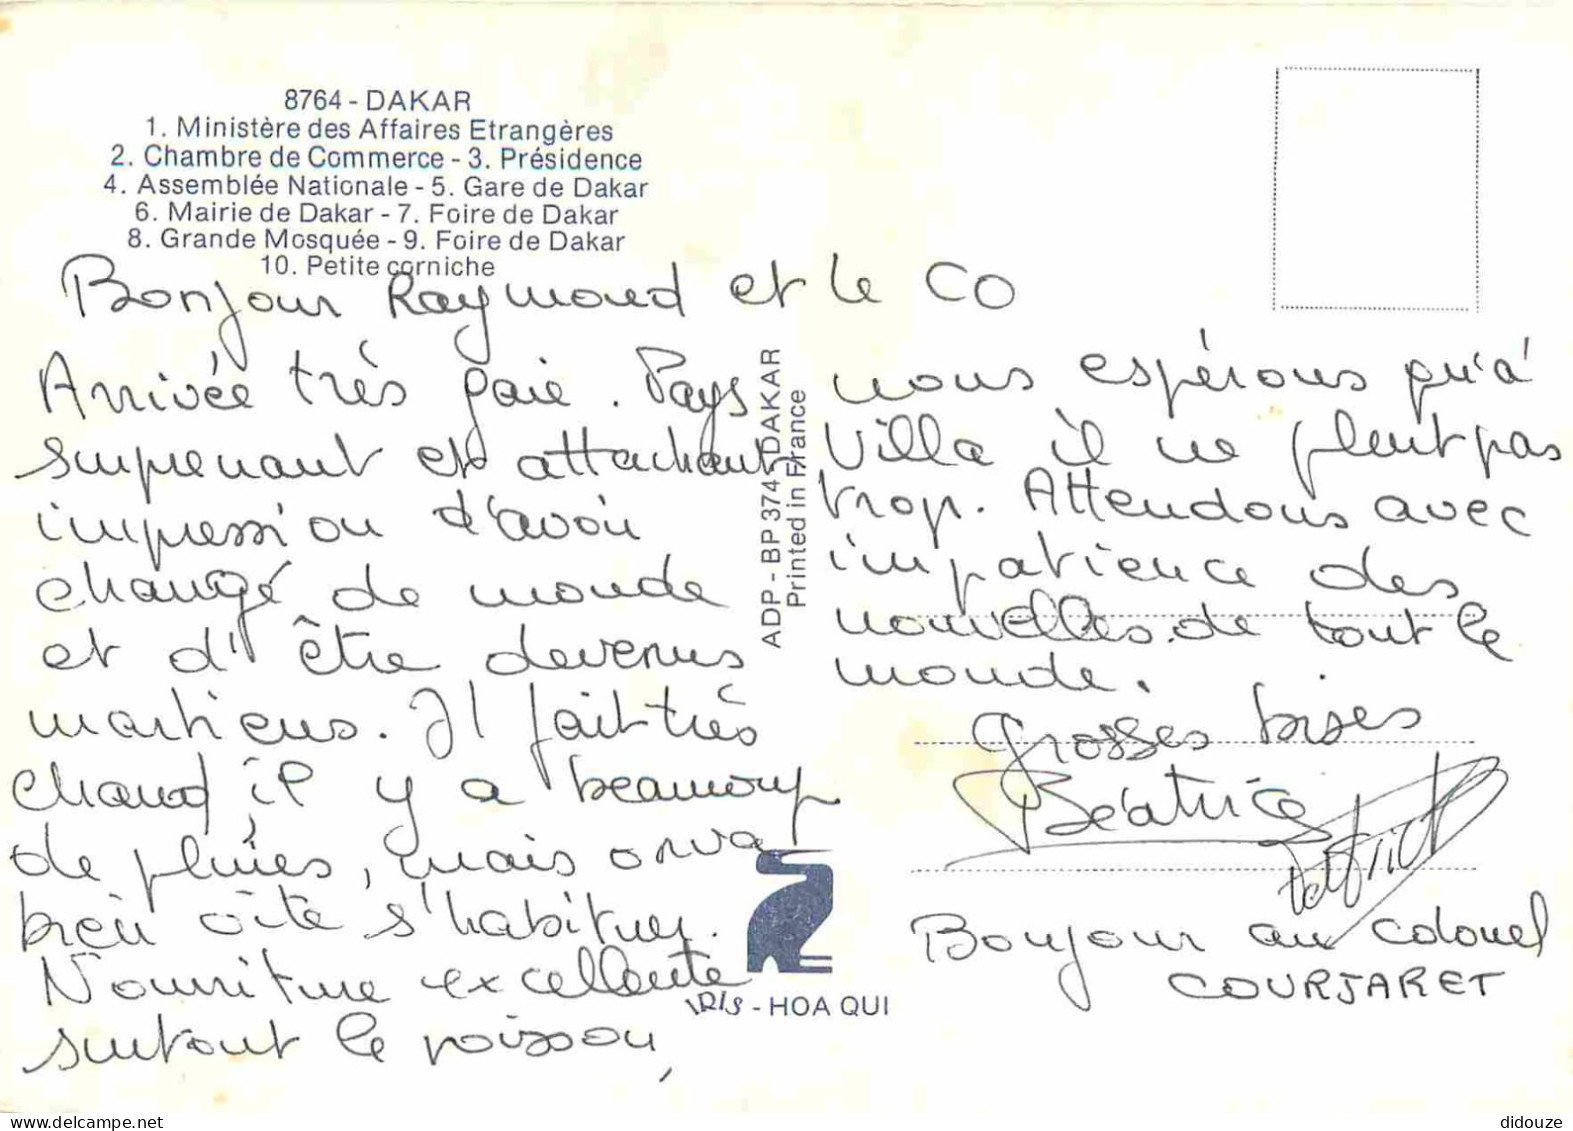 8764 - DAKAR
1. Ministère des Affaires Etrangères
2. Chambre de Commerce - 3. Présidence
4. Assemblée Nationale - 5. Gare de Dakar
6. Mairie de Dakar - 7. Foire de Dakar
8. Grande Mosquée - 9. Foire de Dakar
10. Petite corniche
Bonjour Raymond et le CO
Arrivée très gaie. Pays
surprenant et attachant,
impression d'avoir
changé de monde
et d'être devenus
martiens. Il fait très
chaud il y a beaucoup
de pluies, mais on va
bien vite s'habituer.
Nourriture excellente
surtout le poisson,
ADP - BP 374 DAKAR
Printed in France
IRIS - HOA QUI
nous espérons qu'à
Villa il ne pleut pas
trop. Attendons avec
impatience des
nouvelles de tout le
monde.
Grosses bises
Béatrice
Bonjour au Colonel
COURJARET
didouze